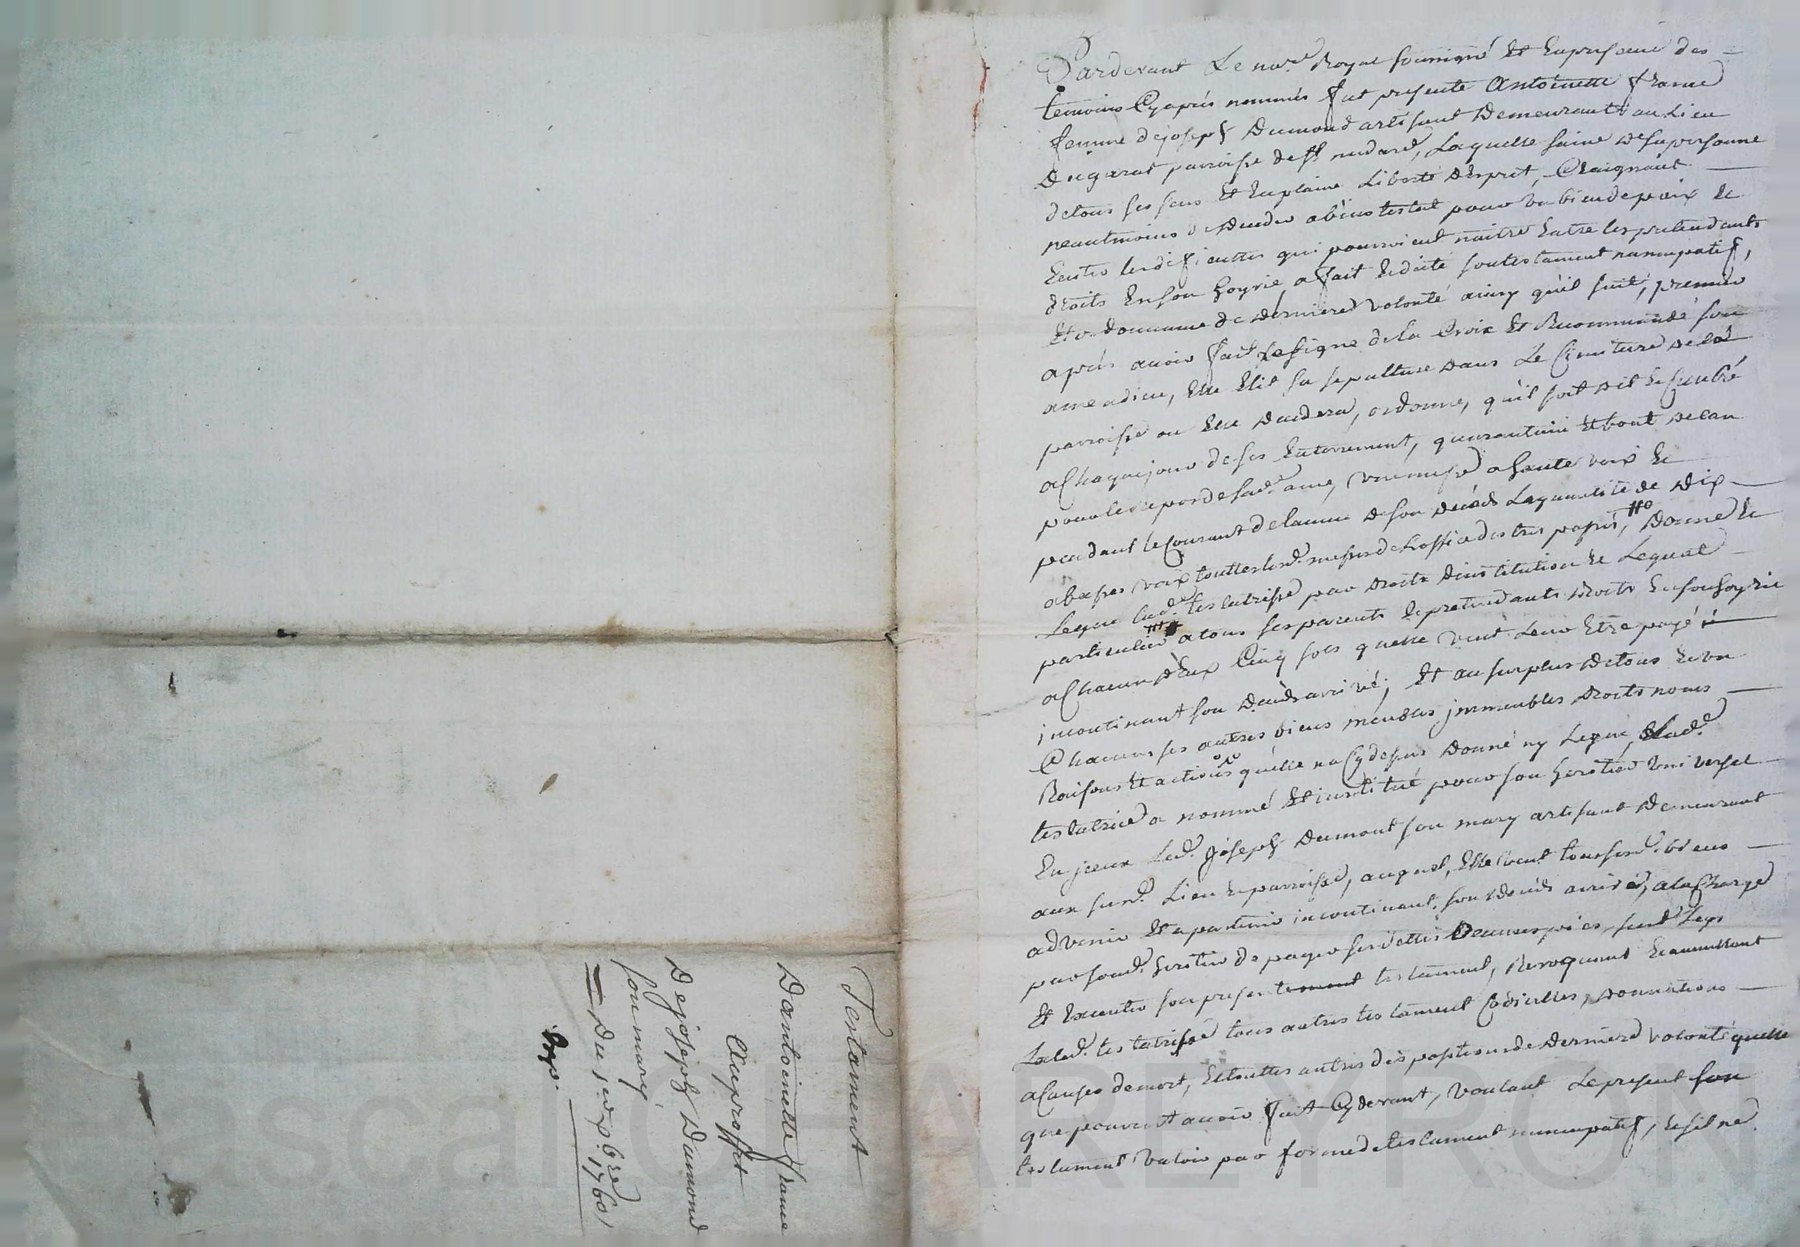 Testament
Dantoinette france
Auproffit
De joseph Dumond
son mary
Du 1er 7bre 1760
Exp.
Pardevant Le nore. Royal soussigné Et En presence des
temoins Cy apres nommés fut presente Antoinette france
femme de joseph Dumond artisant Demeurants au Lieu
Dugarat parroisse de St. medard, Laquelle saine De sa personne
de tous ses sens Et En plaine Liberté Desprit, Craignant
neantmoins de deceder abintestat pour Un bien de paix Et
Eviter les dificultes qui pourroient naitre Entre les pretendants
droits En son hoyrie, a fait Et dicté son testament nuncupatif,
Et ordonnance de derniere volonté ainsy quil suit, premier
aprés avoir fait Le signe de la Croix Et Recommandé son
ame a dieu, Elle Elit sa sepulture dans Le Cimetiere De la
parroisse ou Elle decedera, ordonne, quil soit dit Et Celebré
a Chaque jour de ses Enterrement, quarantaine Et bout de lan
pour le repos de sade. ame, Une messe a haute voix Et
pendant le Courant de lannee de son decés La quantité de dix
a basses voix toutes lesd. messes de Loffice des trepassés, Donne Et
Legue lade. testatrisse par droit dinstitution Et Legual
particulier a tous ses parents Et pretendants droits En son hoyrie
a Chacun dEux Cinq sols quelle veut Leur Etre payé
incontinant son decés arrivé; Et au surplus de tous Et un
Chacuns ses autres biens meubles immeubles droits noms
Raisons Et actions quelle na Cy dessus donné ny Legué, Lade.
testatrice a nommé Et institué pour son heritier Universel
En jceux Led. Joseph Dumont son mary artisant demeurant
aux susd. Lieu Et parroisse, auquel, Elle veut tous sesd. biens
advenir Et apartenir incontinant son decés arrivé, a la Charge
par sond. heritier de payer ses dettes Oeuvres pies, susd. Legs
Et Executer son present testament, Revoquant Et annullant
Lade. testatrisse tous autres testament Codicilles, donnations
a Causes de mort, Et touttes autres dispositions de derniere volonté quelle
que pourroit avoir fait Cy devant, voulant Le present son
testament valoir par forme de testament nuncupatif, Et sil ne